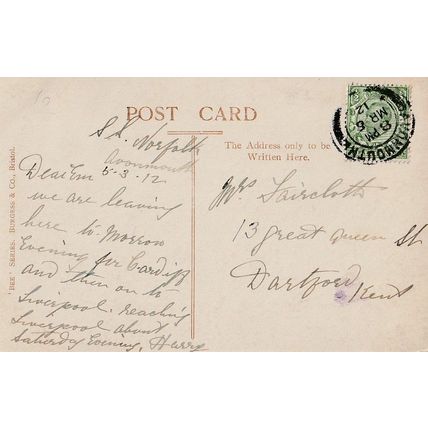 POST CARD
The Address only to be
Written Here.
S.S. Norfolk
Avonmouth
5-3-12
Dear Em
we are leaving
here to-morrow
Evening for Cardiff
and then on to
Liverpool. reaching
Liverpool about
Saturday Evening, Harry
Mrs Faircloth
13 great Queen St
Dartford
Kent
'BEE' SERIES. BURGESS & CO., Bristol.
8 PM
MR 6
12